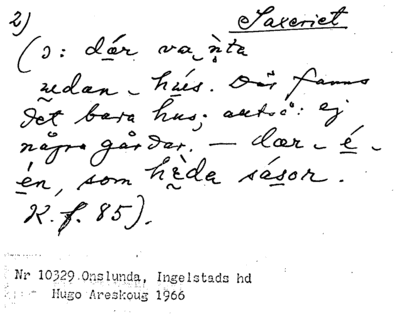 2) Saxeriet
(ɔ: dǽr va ǹta
nedan - hús. Där fanns
det bara hus; alltså: ej
några gårdar. — dær - é -
én, som hèda sásor.
K. f. 85).
Nr 10329 Onslunda, Ingelstads hd
Hugo Areskoug 1966